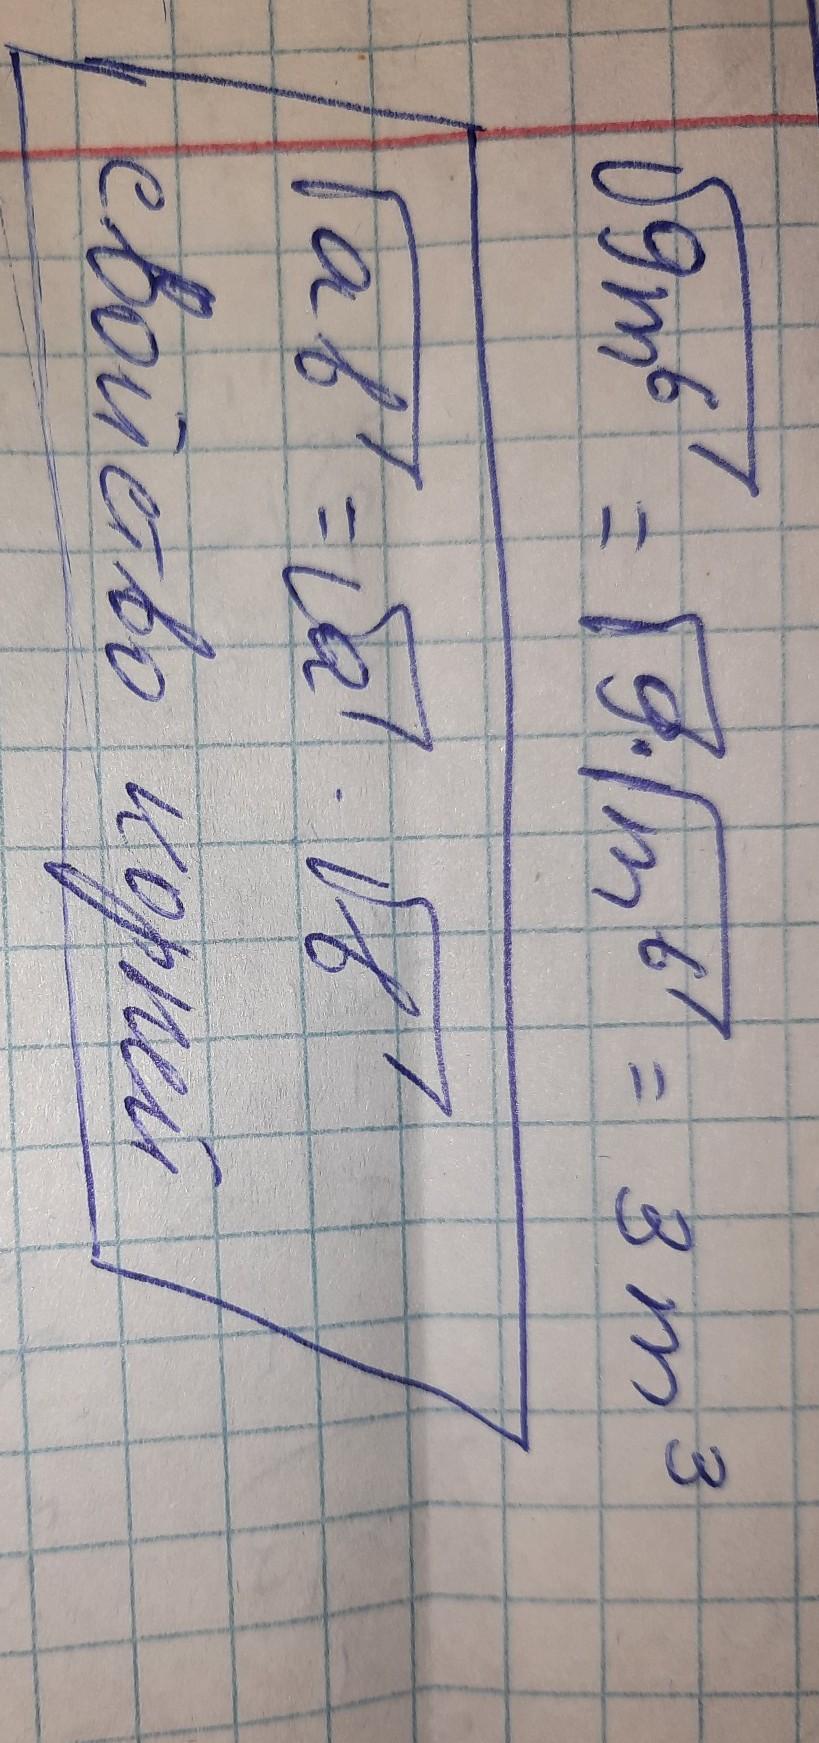 √9m⁶ = √9 · √m⁶ = 3m³
√ав = √а · √в
свойство корней